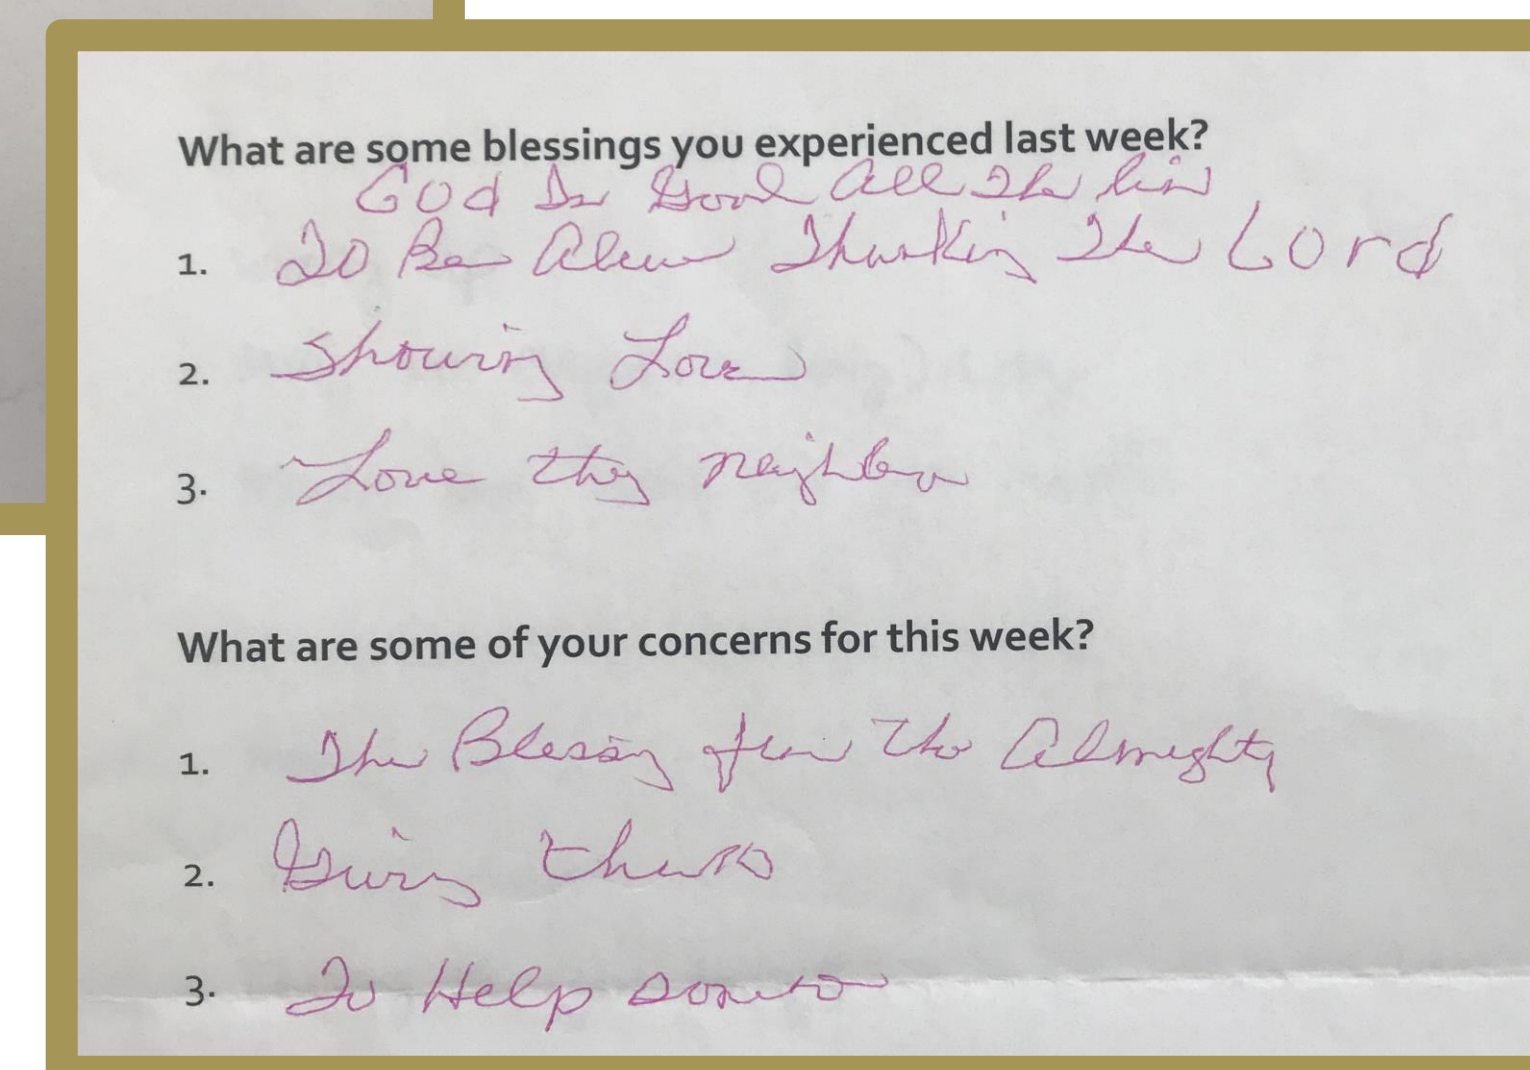 What are some blessings you experienced last week?
God Is Good All The
1. To Be Alive Thanking The Lord
2. Showing Love
3. Love thy neighbor
What are some of your concerns for this week?
1. The Blessing from The Almighty
2. Giving thanks
3. To Help